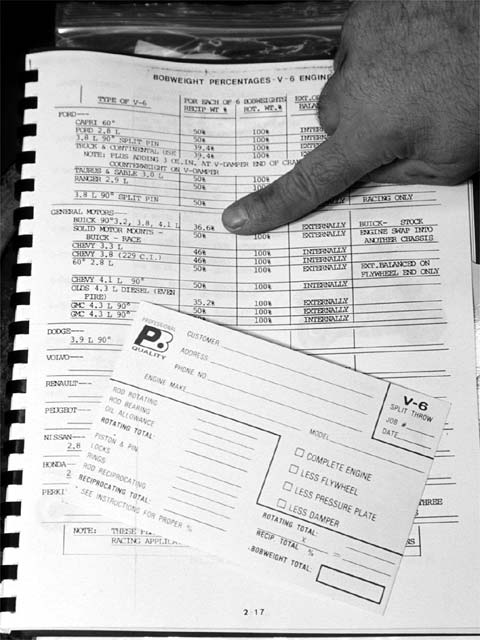 BOBWEIGHT PERCENTAGES-V-6 ENGINE
TYPE OF V-6 FOR EACH OF 6 BOBWEIGHTS
RECIP WT % ROT. WT.%
FORD---
CAPRI 60° 50% 100%
FORD 2.8 L 50% 100%
3.8 L 90° SPLIT PIN 50% 100%
TRUCK & CONTINENTAL USE 39.4% 100%
NOTE: PLUS ADDING 3 OZ.IN. AT V-DAMPER END OF
COUNTERWEIGHT ON V-DAMPER
TAURUS & SABLE 3.0 L 50% 100%
RANGER 2.9 L 50% 100%
3.8 L 90° SPLIT PIN 50% RACING ONLY
GENERAL MOTORS---
BUICK 90°3.2, 3.8, 4.1 L 36.6% EXTERNALLY BUICK- STOCK
SOLID MOTOR MOUNTS - 50% 100% EXTERNALLY ENGINE SWAP INTO
BUICK - RACE ANOTHER CHASSIS
CHEVY 3.3 L 46% 100% EXTERNALLY
CHEVY 3.8 (229 C.I.) 46% 100% EXTERNALLY
60° 2.8 L 50% 100% EXTERNALLY EXT.BALANCED ON
FLYWHEEL END ONLY
CHEVY 4.1 L 90° 50% 100% INTERNALLY
OLDS 4.3 L DIESEL (EVEN
FIRE)
GMC 4.3 L 90° 35.2% 100% EXTERNALLY
GMC 4.3 L 90° 50% 100% INTERNALLY
DODGE---
3.9 L 90°
VOLVO---
RENAULT---
PEUGEOT---
NISSAN---
2.8
HONDA---
2
THREE
NOTE: THESE
RACING
2-17
PROFESSIONAL
PB
QUALITY
CUSTOMER
ADDRESS
PHONE NO.
ENGINE MAKE
MODEL
V-6
SPLIT THROW
JOB #
DATE
ROD ROTATING
ROD BEARING
OIL ALLOWANCE
ROTATING TOTAL:
PISTON & PIN
LOCKS
RINGS
ROD RECIPROCATING
RECIPROCATING TOTAL:
SEE INSTRUCTIONS FOR PROPER %
COMPLETE ENGINE
LESS FLYWHEEL
LESS PRESSURE PLATE
LESS DAMPER
ROTATING TOTAL:
RECIP. TOTAL x % =
BOBWEIGHT TOTAL: